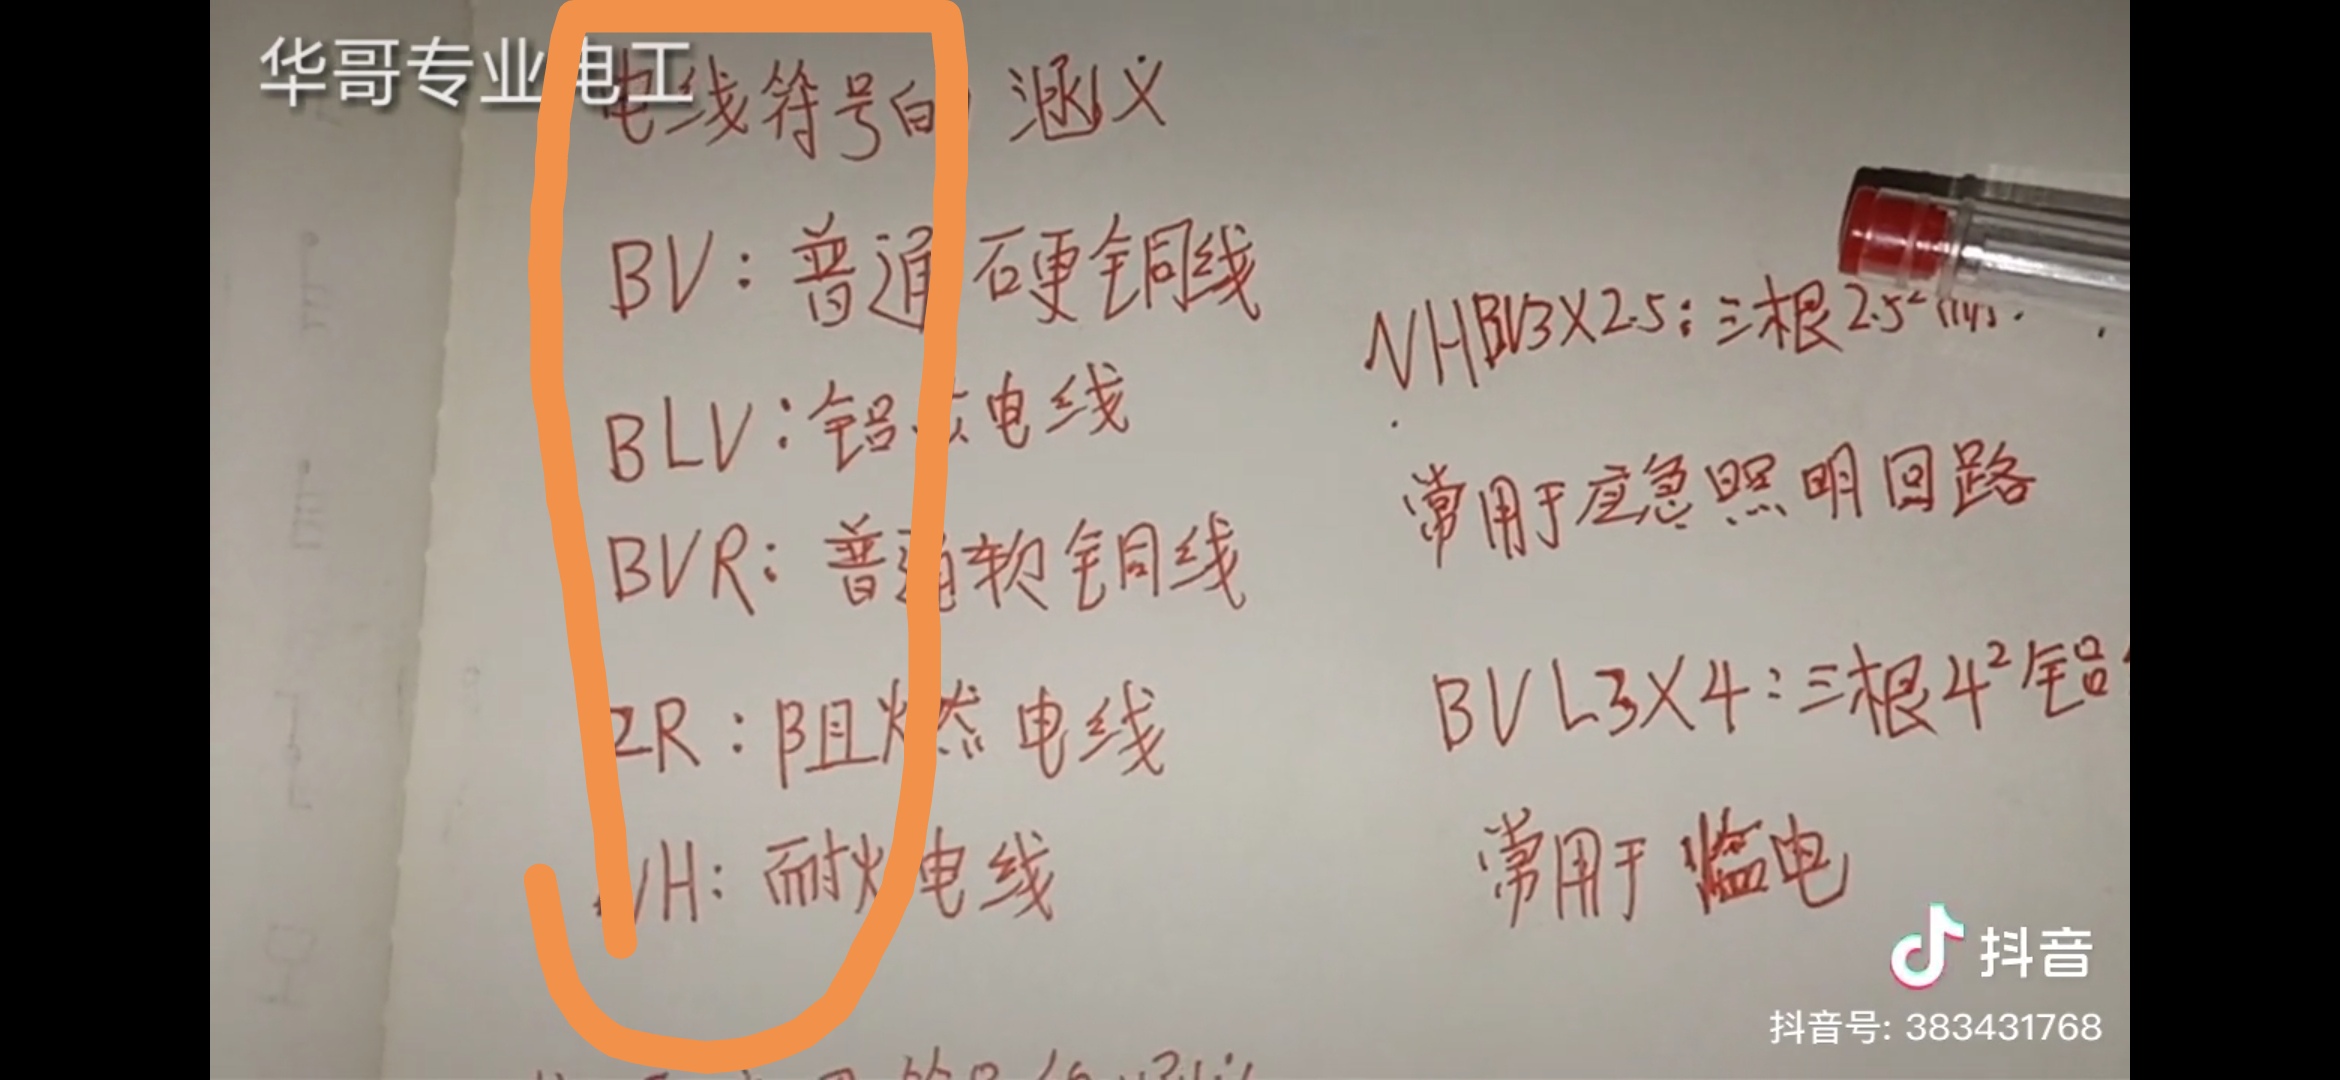 华哥专业电工
电线符号的涵义
BV：普通硬铜线
BLV：铝芯电线
BVR：普通软铜线
ZR：阻燃电线
NH：耐火电线
NHBV3X2.5：三根2.5²
常用于应急照明回路
BVL3X4：三根4²铝
常用于临电
抖音
抖音号: 383431768